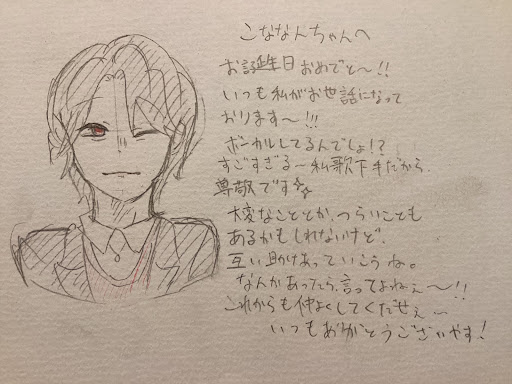 こななんちゃんへ
お誕生日おめでと〜!!
いつも私がお世話になって
おります〜!!!
ボーカルしてるんでしょ!?
すごすぎる〜私歌下手だから、
尊敬です☆
大変なこととか、つらいことも
あるかもしれないけど、
互い助けあっていこうね。
なんかあったら、言ってよねぇ〜!!
これからも仲よくしてくだせぇ…
いつもありがとうございやす!